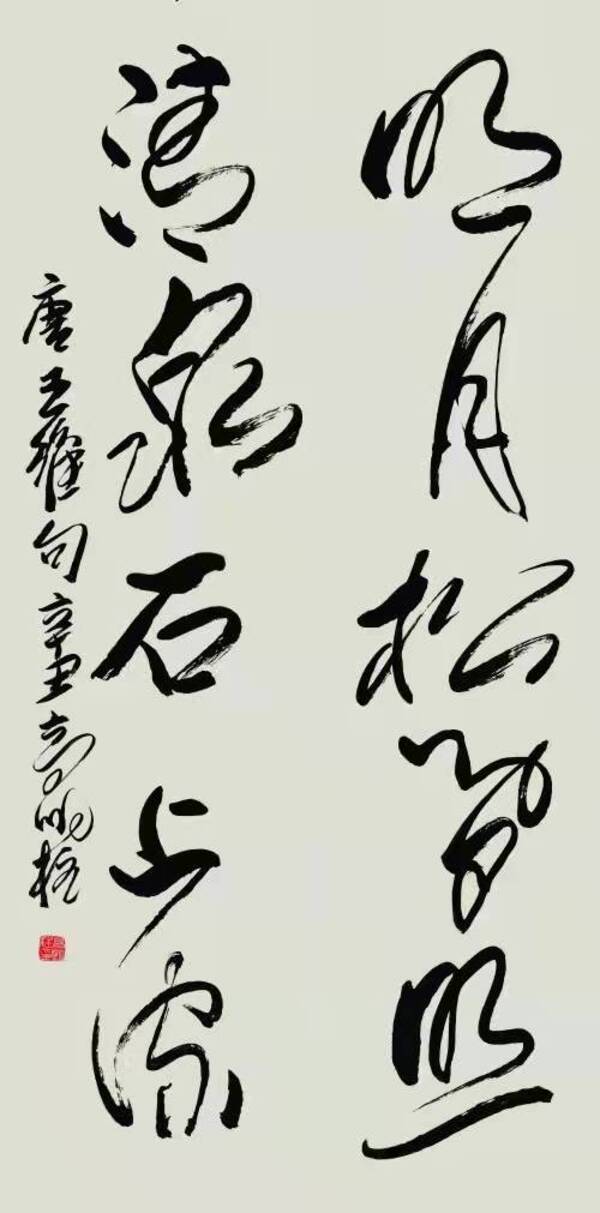 明月松间照
清泉石上流
唐王维句辛丑高明柱